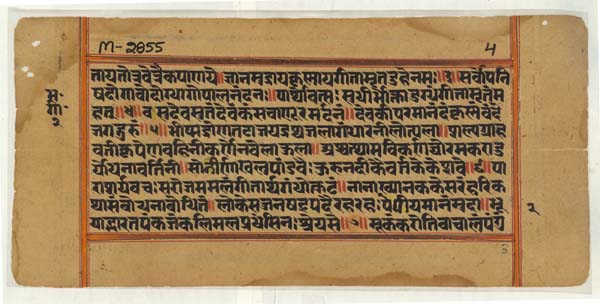 M-2055
4
तायतोत्रवेत्रैकपाणये॥ज्ञानमुद्रायकृष्णायगीतामृतदुहेनमः॥३॥सर्वोपनि
षदोगावोदोग्धागोपालनंदनः॥पार्थोवत्सःसुधीर्भोक्तादुग्धंगीतामृतंम
हत्॥४॥वसुदेवसुतंदेवंकंसचाणूरमर्दनं॥देवकीपरमानंदंकृष्णंवंदे
जगद्गुरुं॥५॥भीष्मद्रोणतटाजयद्रथजलागांधारनीलोत्पला॥शल्यग्राह
वतीकृपेणवहिनीकर्णेनवेलाकुला॥अश्वत्थामविकर्णघोरमकरादु
र्योधनावर्तिनी॥सोतीर्णाखलुपांडवैःऊरुनदीकैवर्तकेकेशवे॥६॥पा
राशर्यवचःसरोजममलंगीतार्थगंधोत्कटं॥नानाख्यानककेसरंहरिक
थासंबोधनाबोधितं॥लोकेसज्जनषट्पदैरहरहःपेपीयमानंमुदा॥भू
याद्भारतपंकजंकलिमलप्रध्वंसिनःश्रेयसे॥॥मूकंकरोतिवाचालंपंगुं
२